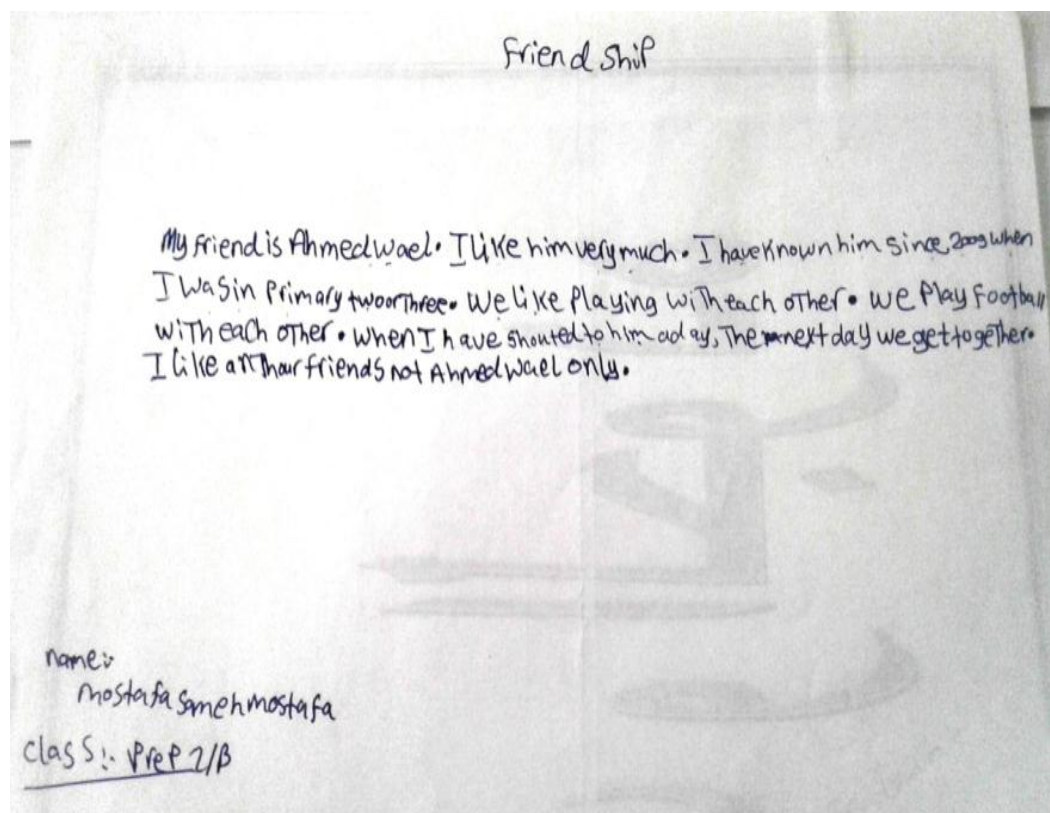 Friend Ship
My friend is Ahmed wael. I like him very much. I have known him since, when
I was in Primary two or Three. We like Playing with each other. We Play Football
with each other. When I have shouted to him a day, The next day we get together.
I like all friends not Ahmed wael only.
name:
mostafa Sameh mostafa
class:. Prep 2/B